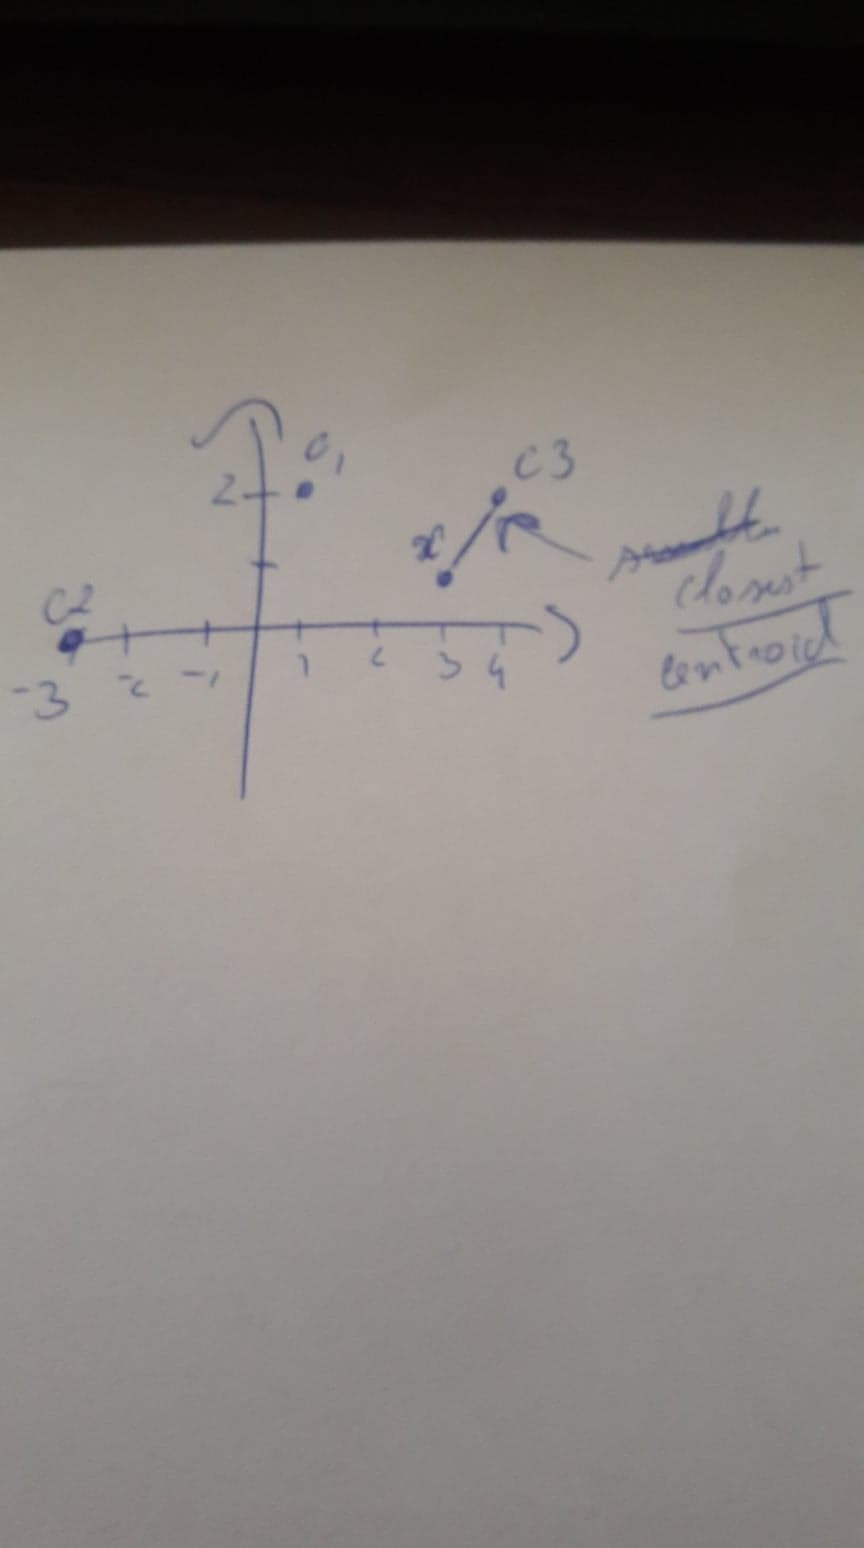 C1
C3
2
x
closest
C2
centroid
-3 -2 -1 1 2 3 4